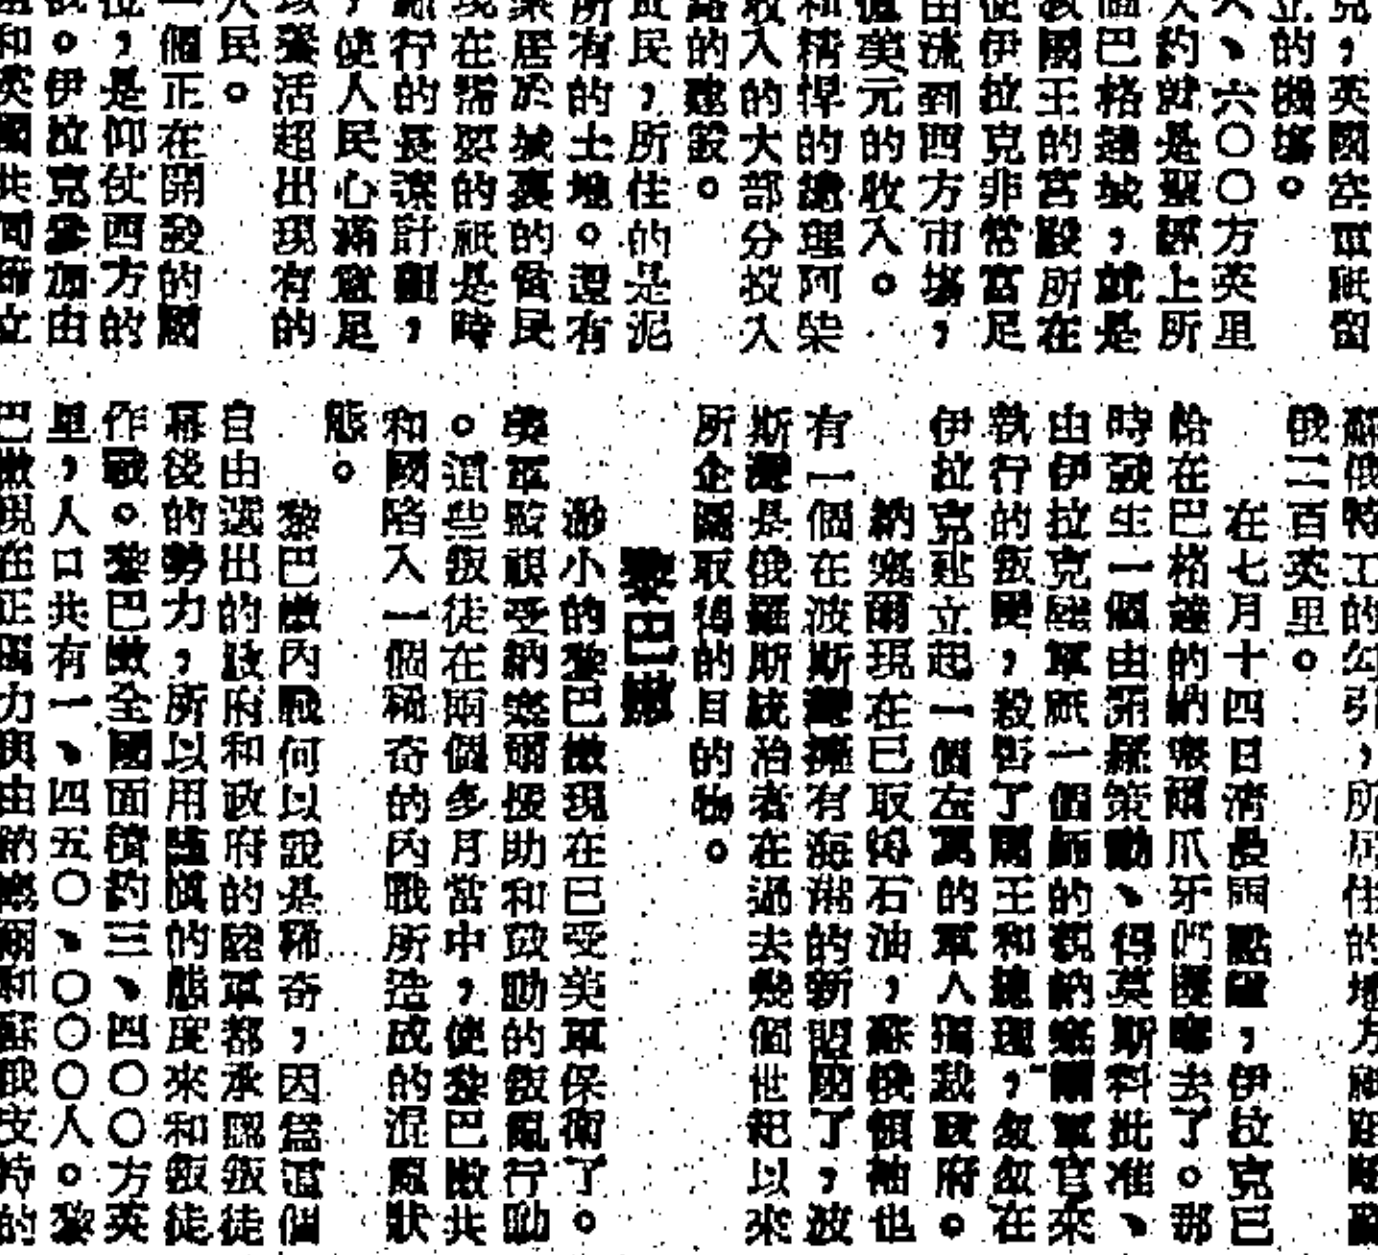 克，英國空軍祇留
立的機場。
人、六〇〇方英里
大約就是聖經上所
個巴格達城，就是
該國王的宮殿所在
使伊拉克非常富足
由流到西方市場，
億美元的收入。
和精悍的總理阿柴
收入的大部分投入
路的建設。
貧民，所住的是泥
所有的土地。還有
樂居於城裏的舊民
現在需要的祇是時
施行的長程計劃，
，使人民心滿意足
該養活超出現有的
人民。
一個正在開發的國
位，是仰仗西方的
。伊拉克參加由
和英國共同締立
蘇俄特工的勾引，所居住的地方祇距離蘇
俄二百英里。
在七月十四日清晨兩點鐘，伊拉克已
恰在巴格達的納塞爾爪牙們攫奪去了。那
時發生一個由開羅策動、得莫斯科批准、
由伊拉克陸軍祇一個師的親納塞爾軍官來
執行的叛變，殺害了國王和總理，匆匆在
伊拉克建立起一個左翼的軍人獨裁政府。
納塞爾現在已取得石油，蘇俄領袖也
有一個在波斯灣擁有海港的新盟國了，波
斯灣是俄羅斯統治者在過去幾個世紀以來
所企圖取得的目的物。
黎巴嫩
渺小的黎巴嫩現在已受美軍保衛了。
美軍監視受納塞爾援助和鼓動的叛亂行動
。這些叛徒在兩個多月當中，使黎巴嫩共
和國陷入一個稀奇的內戰所造成的混亂狀
態。
黎巴嫩內戰何以說是稀奇，因爲這個
自由選出的政府和政府的陸軍都承認叛徒
幕後的勢力，所以用謹慎的態度來和叛徒
作戰。黎巴嫩全國面積約三、四〇〇方英
里，人口共有一、四五〇、〇〇〇人。黎
巴嫩現在正竭力與由納塞爾和蘇俄支持的